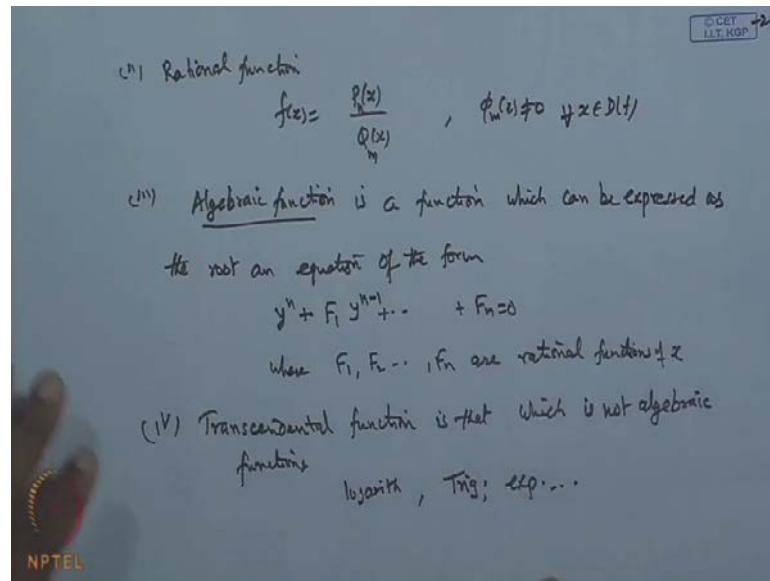 © CET
I.I.T. KGP
(ii) Rational function
f(x) = Pn(x) / Qm(x) , Qm(x) ≠ 0 ∀ x ∈ D(f)
(iii) Algebraic function is a function which can be expressed as
the root an equation of the form
y^n + F1 y^n-1 + .. + Fn = 0
where F1, F2 .. , Fn are rational function of x
(iv) Transcendental function is that which is not algebraic
functions
logarith , Trig; exp....
NPTEL